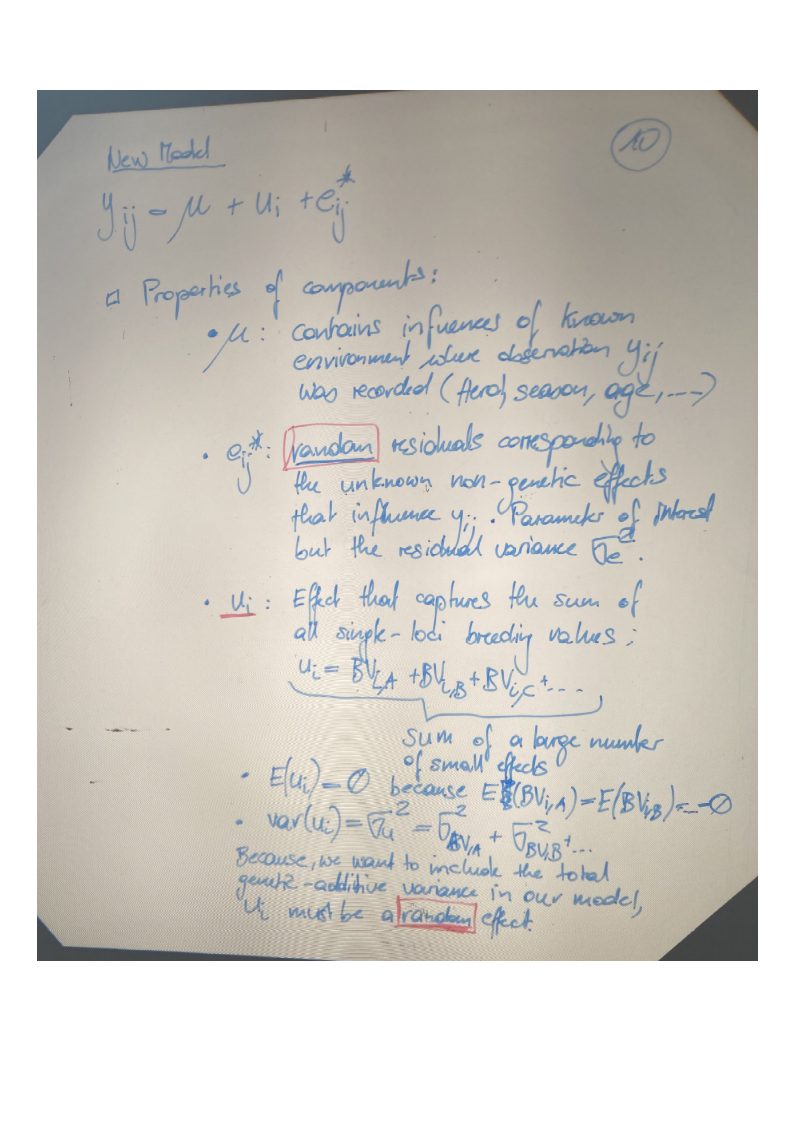 10
New Model
y_ij = μ + u_i + e_ij*
□ Properties of components:
• μ : contains infuences of known
environment where observation y_ij
was recorded (Herd, season, age, ...)
• e_ij* : random residuals corresponding to
the unknown non-genetic effects
that influence y_ij. Parameter of interest
but the residual variance σ_e².
• u_i : Effect that captures the sum of
all single-loci breeding values:
u_i = BV_i,A + BV_i,B + BV_i,C + ...
sum of a large number
of small effects
• E(u_i) = 0 because E(BV_i,A) = E(BV_i,B) = ... = 0
• var(u_i) = σ_u² = σ_BV,A² + σ_BV,B² + ...
Because, we want to include the total
genetic-additive variance in our model,
u_i must be a random effect.